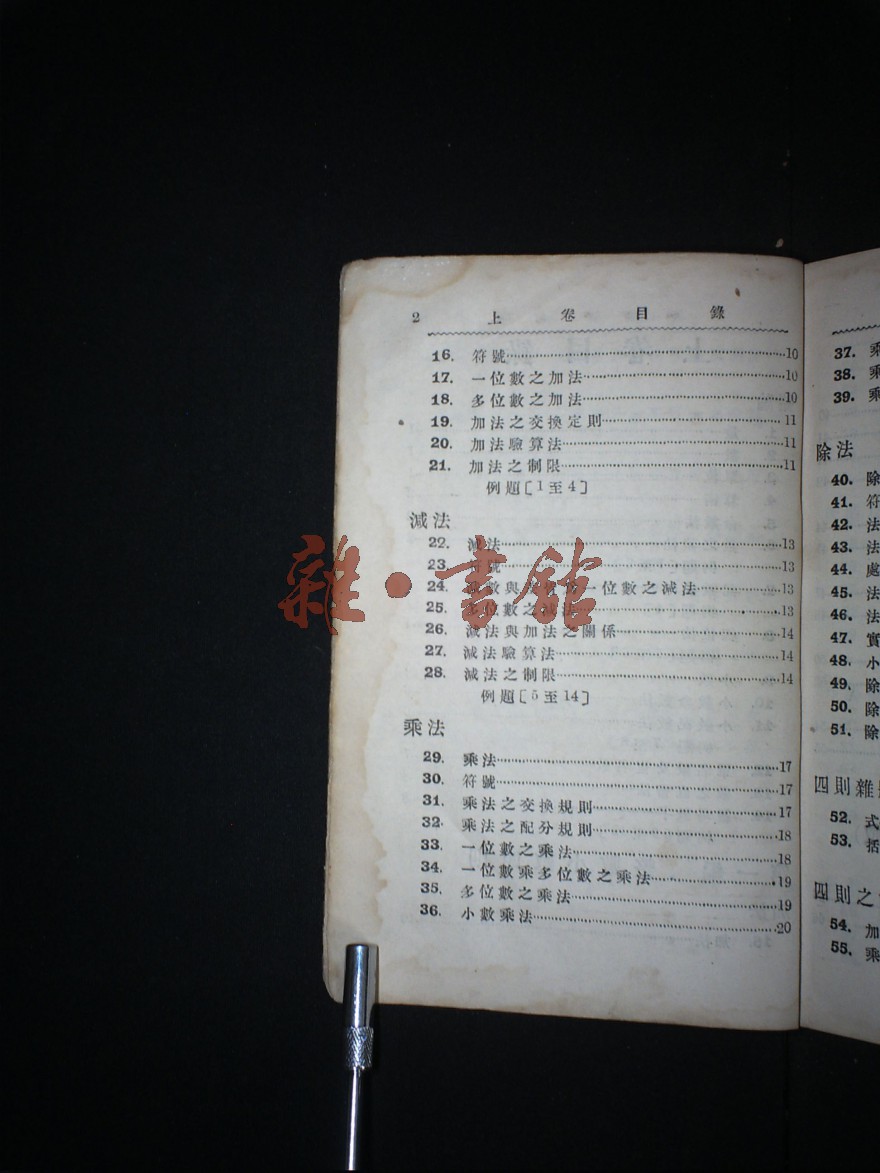 2 上卷目錄
16. 符號 10
17. 一位數之加法 10
18. 多位數之加法 10
19. 加法之交換定則 11
20. 加法驗算法 11
21. 加法之制限 11
例題〔1至4〕
減法
22. 減法 13
23. 符號 13
24. 數與 一位數之減法 13
25. 多位數之減法 13
26. 減法與加法之關係 14
27. 減法驗算法 14
28. 減法之制限 14
例題〔5至14〕
乘法
29. 乘法 17
30. 符號 17
31. 乘法之交換規則 17
32. 乘法之配分規則 18
33. 一位數之乘法 18
34. 一位數乘多位數之乘法 19
35. 多位數之乘法 19
36. 小數乘法 20
雜·書館
37. 乘
38. 乘
39. 乘
除法
40. 除
41. 符
42. 法
43. 法
44. 處
45. 法
46. 法
47. 實
48. 小
49. 除
50. 除
51. 除
四則雜
52. 式
53. 括
四則之
54. 加
55. 乘